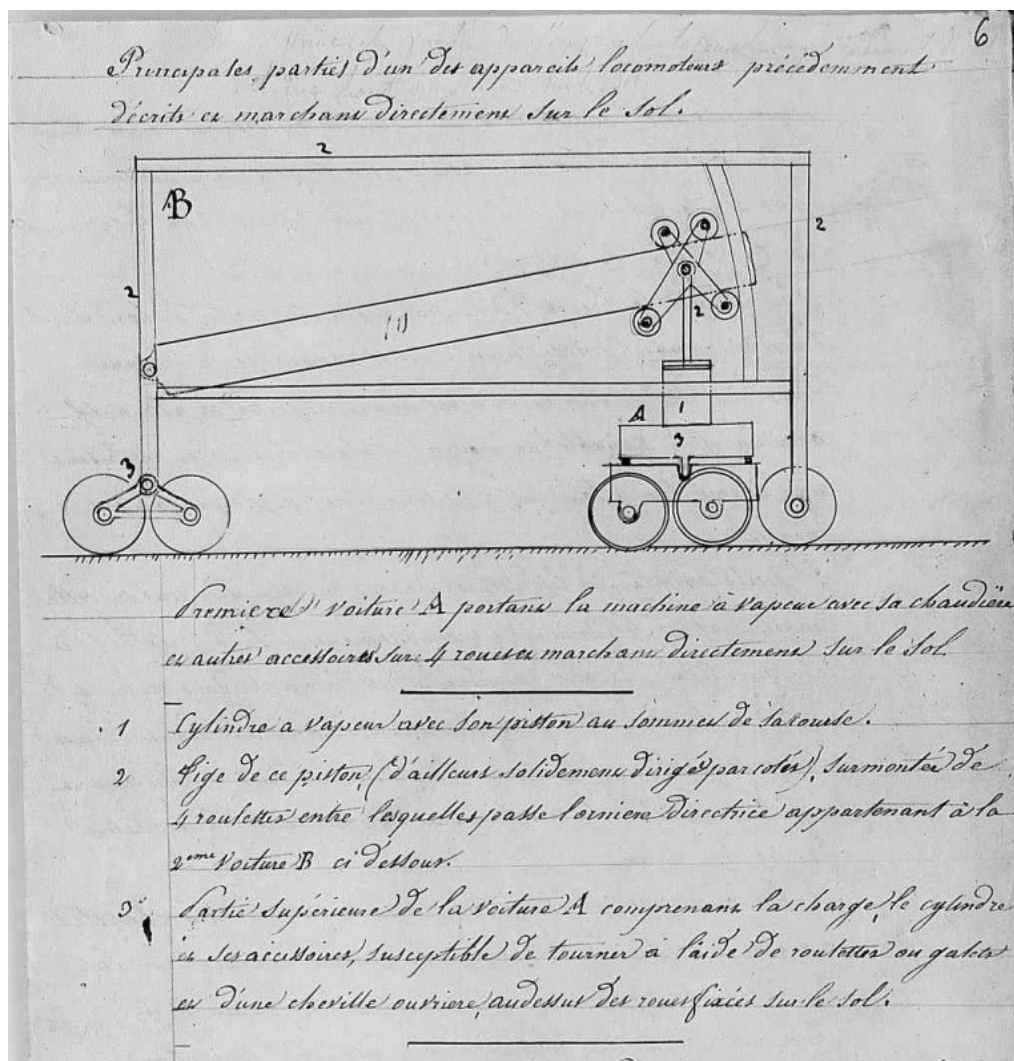 6
Principales parties d'un des appareils locomoteurs précédemment
décrits et marchant directement sur le sol.
2
B
2
2
(1)
2
A
1
3
3
Premiere voiture A portant la machine à vapeur avec sa chaudière
et autres accessoires sur 4 roues et marchant directement sur le sol
1 Cylindre a vapeur avec son piston au sommet de sa course.
2 Tige de ce piston, (d'ailleurs solidement dirigé par cotés), surmontée de
4 roulettes entre lesquelles passe l'orniere directrice appartenant à la
2eme voiture B ci dessour.
3° Partie supérieure de la voiture A comprenant la charge, le cylindre
et ses accessoires, susceptible de tourner à l'aide de roulettes ou galets
et d'une cheville ouvriere, au dessus des roues fixées sur le sol.